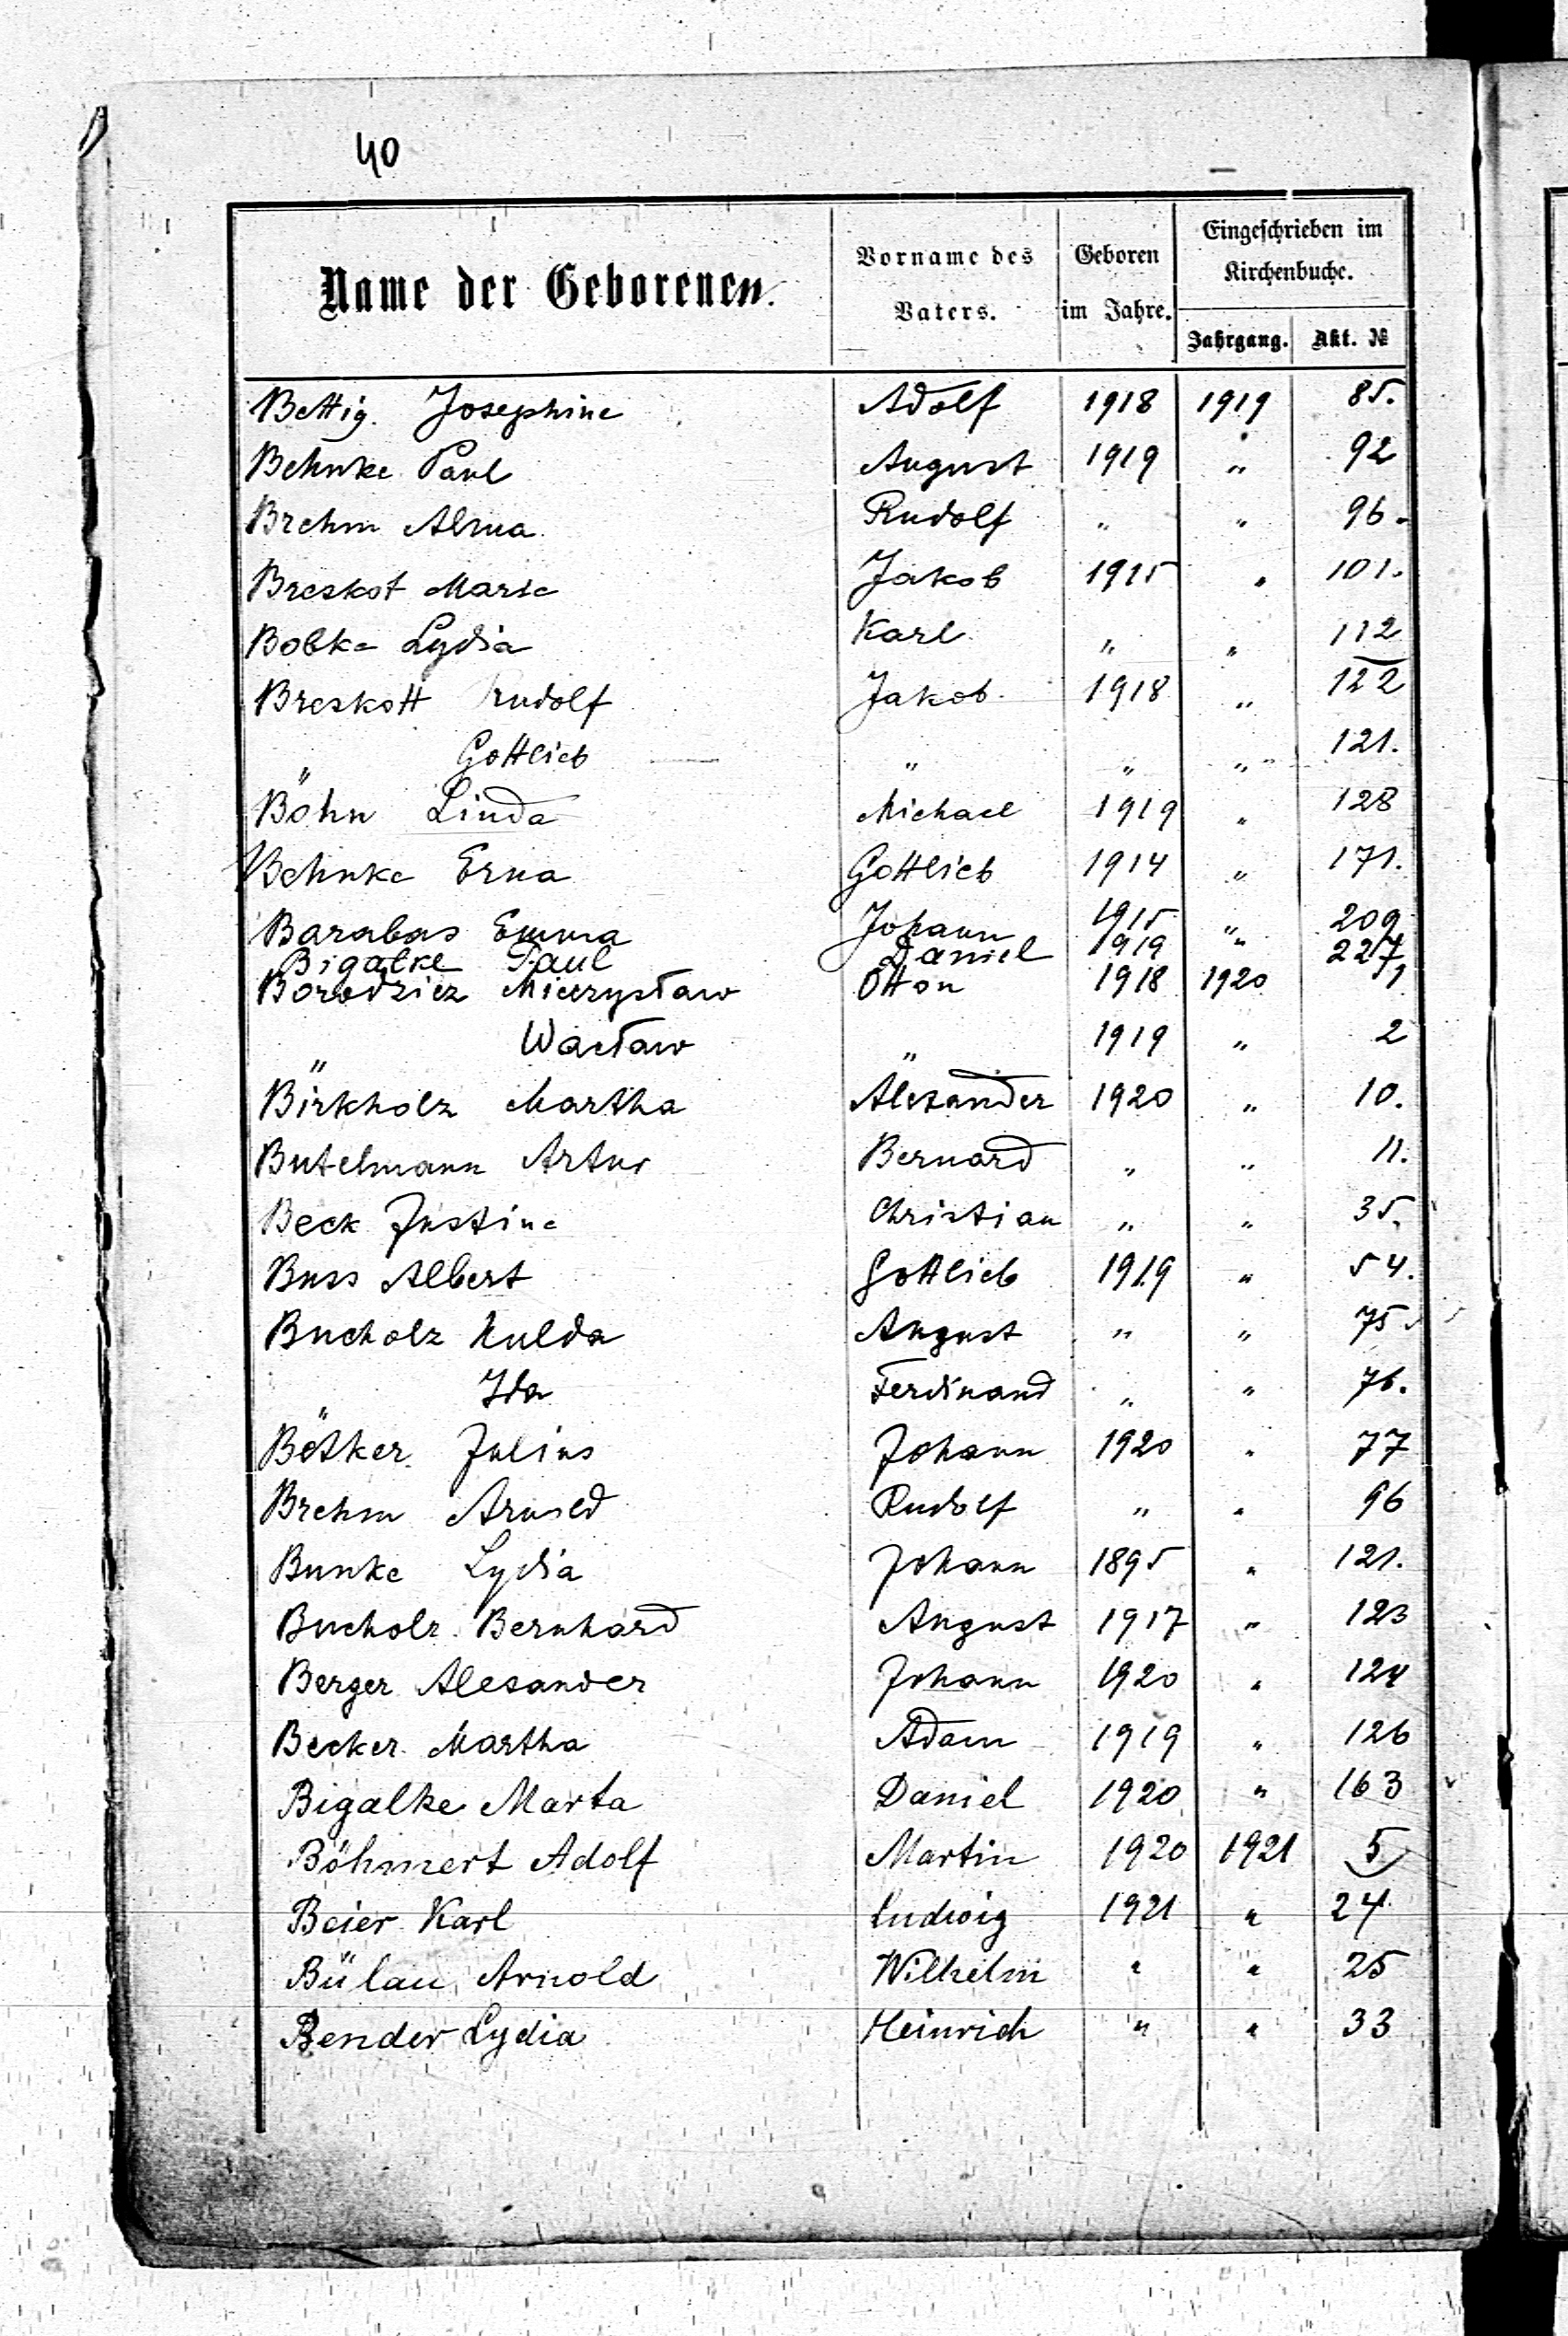 40
Name der Geborenen. Vorname des Vaters. Geboren im Jahre. Eingeschrieben im Kirchenbuche.
Jahrgang. Akt. №
Bettig. Josephine Adolf 1918 1919 85.
Behnke Paul August 1919 " 92
Brehm Alma Rudolf " " 96.
Breskot Marie Jakob 1915 " 101.
Bobke Lydia Karl " " 112
Breskott Rudolf Jakob 1918 " 122
" Gottlieb " " " 121.
Böhn Linda Michael 1919 " 128
Behnke Erna Gottlieb 1914 " 171.
Barabas Emma Johann 1915 " 209
Bigalke Paul Daniel 1919 " 227
Borodzicz Mieczysław Otton 1918 1920 1
" Wacław " 1919 " 2
Birkholz Martha Alexander 1920 " 10.
Butelmann Artur Bernard " " 11.
Beck Justine Christian " " 35.
Buss Albert Gottlieb 1919 " 54.
Bucholz Hulda August " " 75.
" Ida Ferdinand " " 76.
Bötker Julius Johann 1920 " 77
Brehm Arnold Rudolf " " 96
Bunke Lydia Johann 1895 " 121.
Bucholz Bernhard August 1917 " 123
Berger Alexander Johann 1920 " 124
Becker Martha Adam 1919 " 126
Bigalke Marta Daniel 1920 " 163
Böhmert Adolf Martin 1920 1921 5
Beier Karl Ludwig 1921 " 24
Bülau Arnold Wilhelm " " 25
Bender Lydia Heinrich " " 33